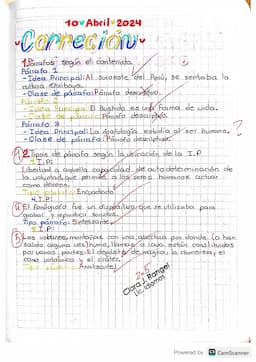 10 Abril 2024
Corrección
1. Párrafos según el contenido.
Párrafo 1
- Idea Principal: Al suroeste del Perú, se sentaba la
cultura
- Clase de párrafo: Párrafo descriptivo.
Párrafo 2
- Idea Principal: El Bushido es una forma de vida.
- Clase de párrafo: Párrafo descriptivo.
Párrafo 3
- Idea Principal: La estudia al ser humano.
- Clase de párrafo: Párrafo descriptivo.
?
2. Tipos de párrafo según la ubicación de la I.P
I.P:
Libertad a aquella capacidad de auto determinación de
la voluntad, que permite a los seres humanos actuar
como deseen.
Tipo párrafo: Encuadrado
I.P:
El fonógrafo fue un dispositivo que se utilizaba para
grabar y reproducir sonidos.
Tipo párrafo: Sintetizante
I.P:
Los volcanes, montañas con una abertura por donde (o han
salido alguna vez) humo, llamas o lava, están constituidos
por varias partes: El depósito de magma, la chimenea, el
cono volcánico y el cráter.
Tipo párrafo: Analizante
2-5
Clara J. Rangel
Lic. Idiomas
Powered by CS CamScanner